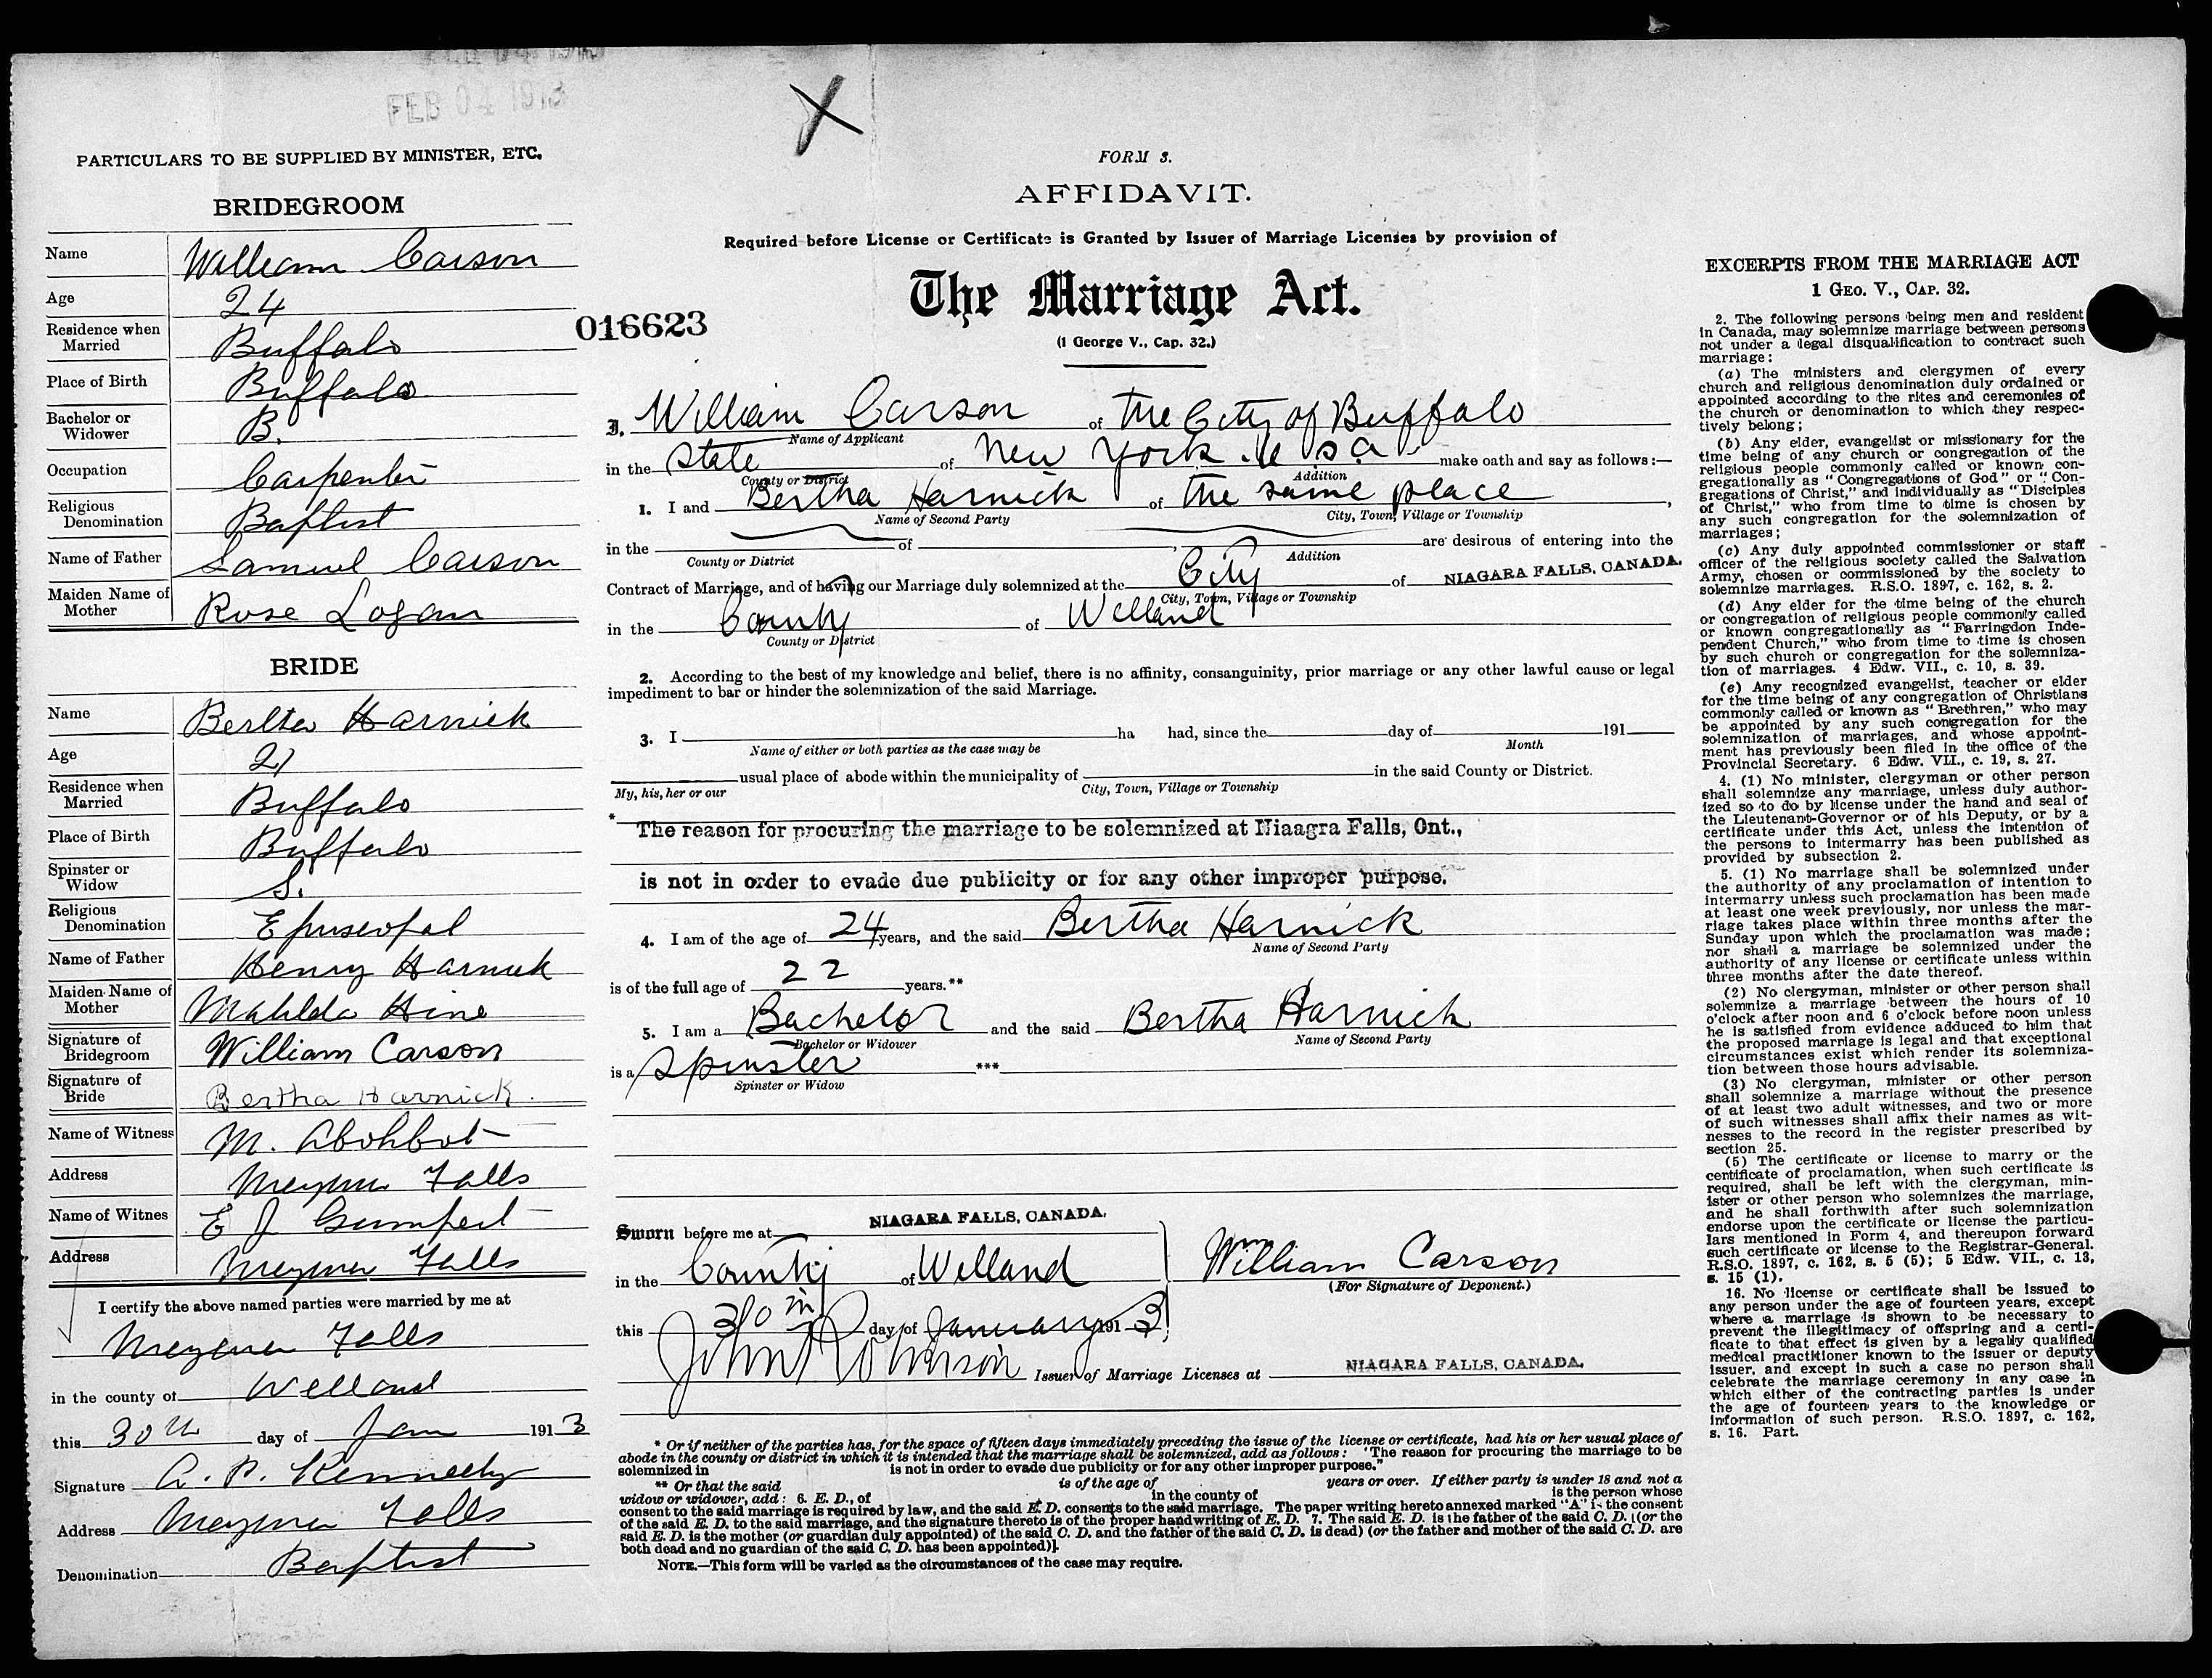 FEB 04 1913
X
PARTICULARS TO BE SUPPLIED BY MINISTER, ETC.
BRIDEGROOM
Name William Carson
Age 24
Residence when Married Buffalo
Place of Birth Buffalo
Bachelor or Widower B.
Occupation Carpenter
Religious Denomination Baptist
Name of Father Samuel Carson
Maiden Name of Mother Rose Logan
BRIDE
Name Bertha Harnick
Age 21
Residence when Married Buffalo
Place of Birth Buffalo
Spinster or Widow S.
Religious Denomination Episcopal
Name of Father Henry Harnick
Maiden Name of Mother Mahilda Hine
Signature of Bridegroom William Carson
Signature of Bride Bertha Harnick.
Name of Witness M.
Address Falls
Name of Witnes E J Gumpert
Address Falls
I certify the above named parties were married by me at
Falls
in the county of Welland
this 30th day of Jan 1913
Signature A. P. Kennedy
Address Falls
Denomination Baptist
016623
FORM 3.
AFFIDAVIT.
Required before License or Certificate is Granted by Issuer of Marriage Licenses by provision of
The Marriage Act.
(1 George V., Cap. 32.)
I, William Carson of the City of Buffalo
Name of Applicant
in the State of New York. U S A make oath and say as follows:—
County or District Addition
1. I and Bertha Harnick of the same place,
Name of Second Party City, Town, Village or Township
in the of , are desirous of entering into the
County or District Addition
Contract of Marriage, and of having our Marriage duly solemnized at the City of NIAGARA FALLS, CANADA.
City, Town, Village or Township
in the County of Welland
County or District
2. According to the best of my knowledge and belief, there is no affinity, consanguinity, prior marriage or any other lawful cause or legal
impediment to bar or hinder the solemnization of the said Marriage.
3. I ha had, since the day of 191
Name of either or both parties as the case may be Month
usual place of abode within the municipality of in the said County or District.
My, his, her or our City, Town, Village or Township
* The reason for procuring the marriage to be solemnized at Niaagra Falls, Ont.,
is not in order to evade due publicity or for any other improper purpose.
4. I am of the age of 24 years, and the said Bertha Harnick
Name of Second Party
is of the full age of 22 years.**
5. I am a Bachelor and the said Bertha Harnick
Bachelor or Widower Name of Second Party
is a Spinster ***
Spinster or Widow
Sworn before me at NIAGARA FALLS, CANADA.
in the County of Welland
William Carson
(For Signature of Deponent.)
this 30th day of January 1913
John Robinson Issuer of Marriage Licenses at NIAGARA FALLS, CANADA.
* Or if neither of the parties has, for the space of fifteen days immediately preceding the issue of the license or certificate, had his or her usual place of
abode in the county or district in which it is intended that the marriage shall be solemnized, add as follows: "The reason for procuring the marriage to be
solemnized in is not in order to evade due publicity or for any other improper purpose."
** Or that the said is of the age of years or over. If either party is under 18 and not a
widow or widower, add: 6. E. D., of in the county of is the person whose
consent to the said marriage is required by law, and the said E. D. consents to the said marriage. The paper writing hereto annexed marked "A" is the consent
of the said E. D. to the said marriage, and the signature thereto is of the proper handwriting of E. D. 7. The said E. D. is the father of the said C. D. [(or the
said E. D. is the mother (or guardian duly appointed) of the said C. D. and the father of the said C. D. is dead) (or the father and mother of the said C. D. are
both dead and no guardian of the said C. D. has been appointed)].
NOTE.—This form will be varied as the circumstances of the case may require.
EXCERPTS FROM THE MARRIAGE ACT
1 GEO. V., CAP. 32.
2. The following persons being men and resident
in Canada, may solemnize marriage between persons
not under a legal disqualification to contract such
marriage:
(a) The ministers and clergymen of every
church and religious denomination duly ordained or
appointed according to the rites and ceremonies of
the church or denomination to which they respec-
tively belong;
(b) Any elder, evangelist or missionary for the
time being of any church or congregation of the
religious people commonly called or known con-
gregationally as "Congregations of God" or "Con-
gregations of Christ," and individually as "Disciples
of Christ," who from time to time is chosen by
any such congregation for the solemnization of
marriages;
(c) Any duly appointed commissioner or staff
officer of the religious society called the Salvation
Army, chosen or commissioned by the society to
solemnize marriages. R.S.O. 1897, c. 162, s. 2.
(d) Any elder for the time being of the church
or congregation of religious people commonly called
or known congregationally as "Farringdon Inde-
pendent Church," who from time to time is chosen
by such church or congregation for the solemniza-
tion of marriages. 4 Edw. VII., c. 10, s. 39.
(e) Any recognized evangelist, teacher or elder
for the time being of any congregation of Christians
commonly called or known as "Brethren," who may
be appointed by any such congregation for the
solemnization of marriages, and whose appoint-
ment has previously been filed in the office of the
Provincial Secretary. 6 Edw. VII., c. 19, s. 27.
4. (1) No minister, clergyman or other person
shall solemnize any marriage, unless duly author-
ized so to do by license under the hand and seal of
the Lieutenant-Governor or of his Deputy, or by a
certificate under this Act, unless the intention of
the persons to intermarry has been published as
provided by subsection 2.
5. (1) No marriage shall be solemnized under
the authority of any proclamation of intention to
intermarry unless such proclamation has been made
at least one week previously, nor unless the mar-
riage takes place within three months after the
Sunday upon which the proclamation was made;
nor shall a marriage be solemnized under the
authority of any license or certificate unless within
three months after the date thereof.
(2) No clergyman, minister or other person shall
solemnize a marriage between the hours of 10
o'clock after noon and 6 o'clock before noon unless
he is satisfied from evidence adduced to him that
the proposed marriage is legal and that exceptional
circumstances exist which render its solemniza-
tion between those hours advisable.
(3) No clergyman, minister or other person
shall solemnize a marriage without the presence
of at least two adult witnesses, and two or more
of such witnesses shall affix their names as wit-
nesses to the record in the register prescribed by
section 25.
(5) The certificate or license to marry or the
certificate of proclamation, when such certificate is
required, shall be left with the clergyman, min-
ister or other person who solemnizes the marriage,
and he shall forthwith after such solemnization
endorse upon the certificate or license the particu-
lars mentioned in Form 4, and thereupon forward
such certificate or license to the Registrar-General.
R.S.O. 1897, c. 162, s. 5 (5); 5 Edw. VII., c. 13,
s. 15 (1).
16. No license or certificate shall be issued to
any person under the age of fourteen years, except
where a marriage is shown to be necessary to
prevent the illegitimacy of offspring and a certi-
ficate to that effect is given by a legally qualified
medical practitioner known to the issuer or deputy
issuer, and except in such a case no person shall
celebrate the marriage ceremony in any case in
which either of the contracting parties is under
the age of fourteen years to the knowledge or
information of such person. R.S.O. 1897, c. 162,
s. 16. Part.